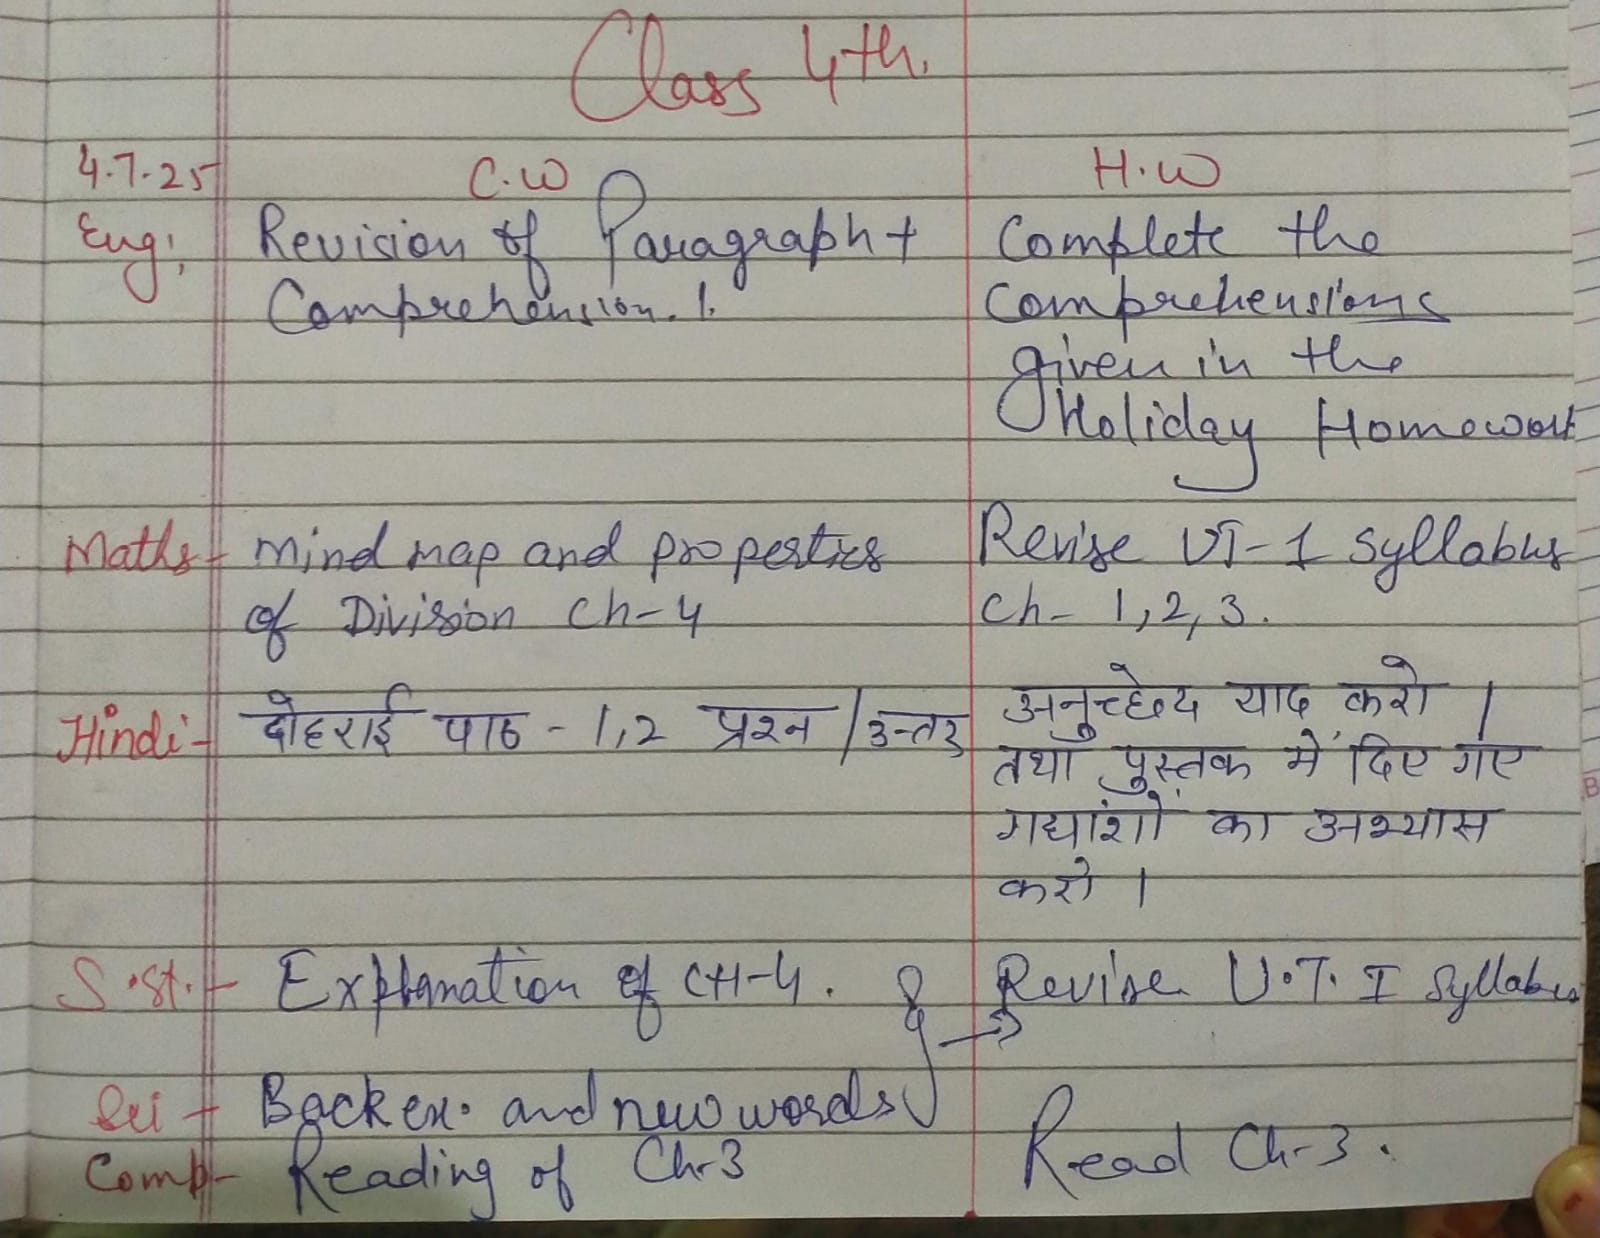 Class 4th.
4.7.25 C.W H.W
Eng: Revision of Paragraph + Complete the
Comprehension. 1. Comprehensions
given in the
Holiday Homework
Maths- Mind map and properties Revise UT-1 syllabus
of Division Ch-4 Ch- 1,2,3.
Hindi- दोहराई पाठ - 1,2 प्रश्न / उत्तर अनुच्छेद याद करो ।
तथा पुस्तक में दिए गए
गद्यांशों का अभ्यास
करो ।
S.st.- Explanation of CH-4. Revise U.T. I Syllabus
Sci- Back ex. and new words
Comp- Reading of Ch-3 Read Ch-3.